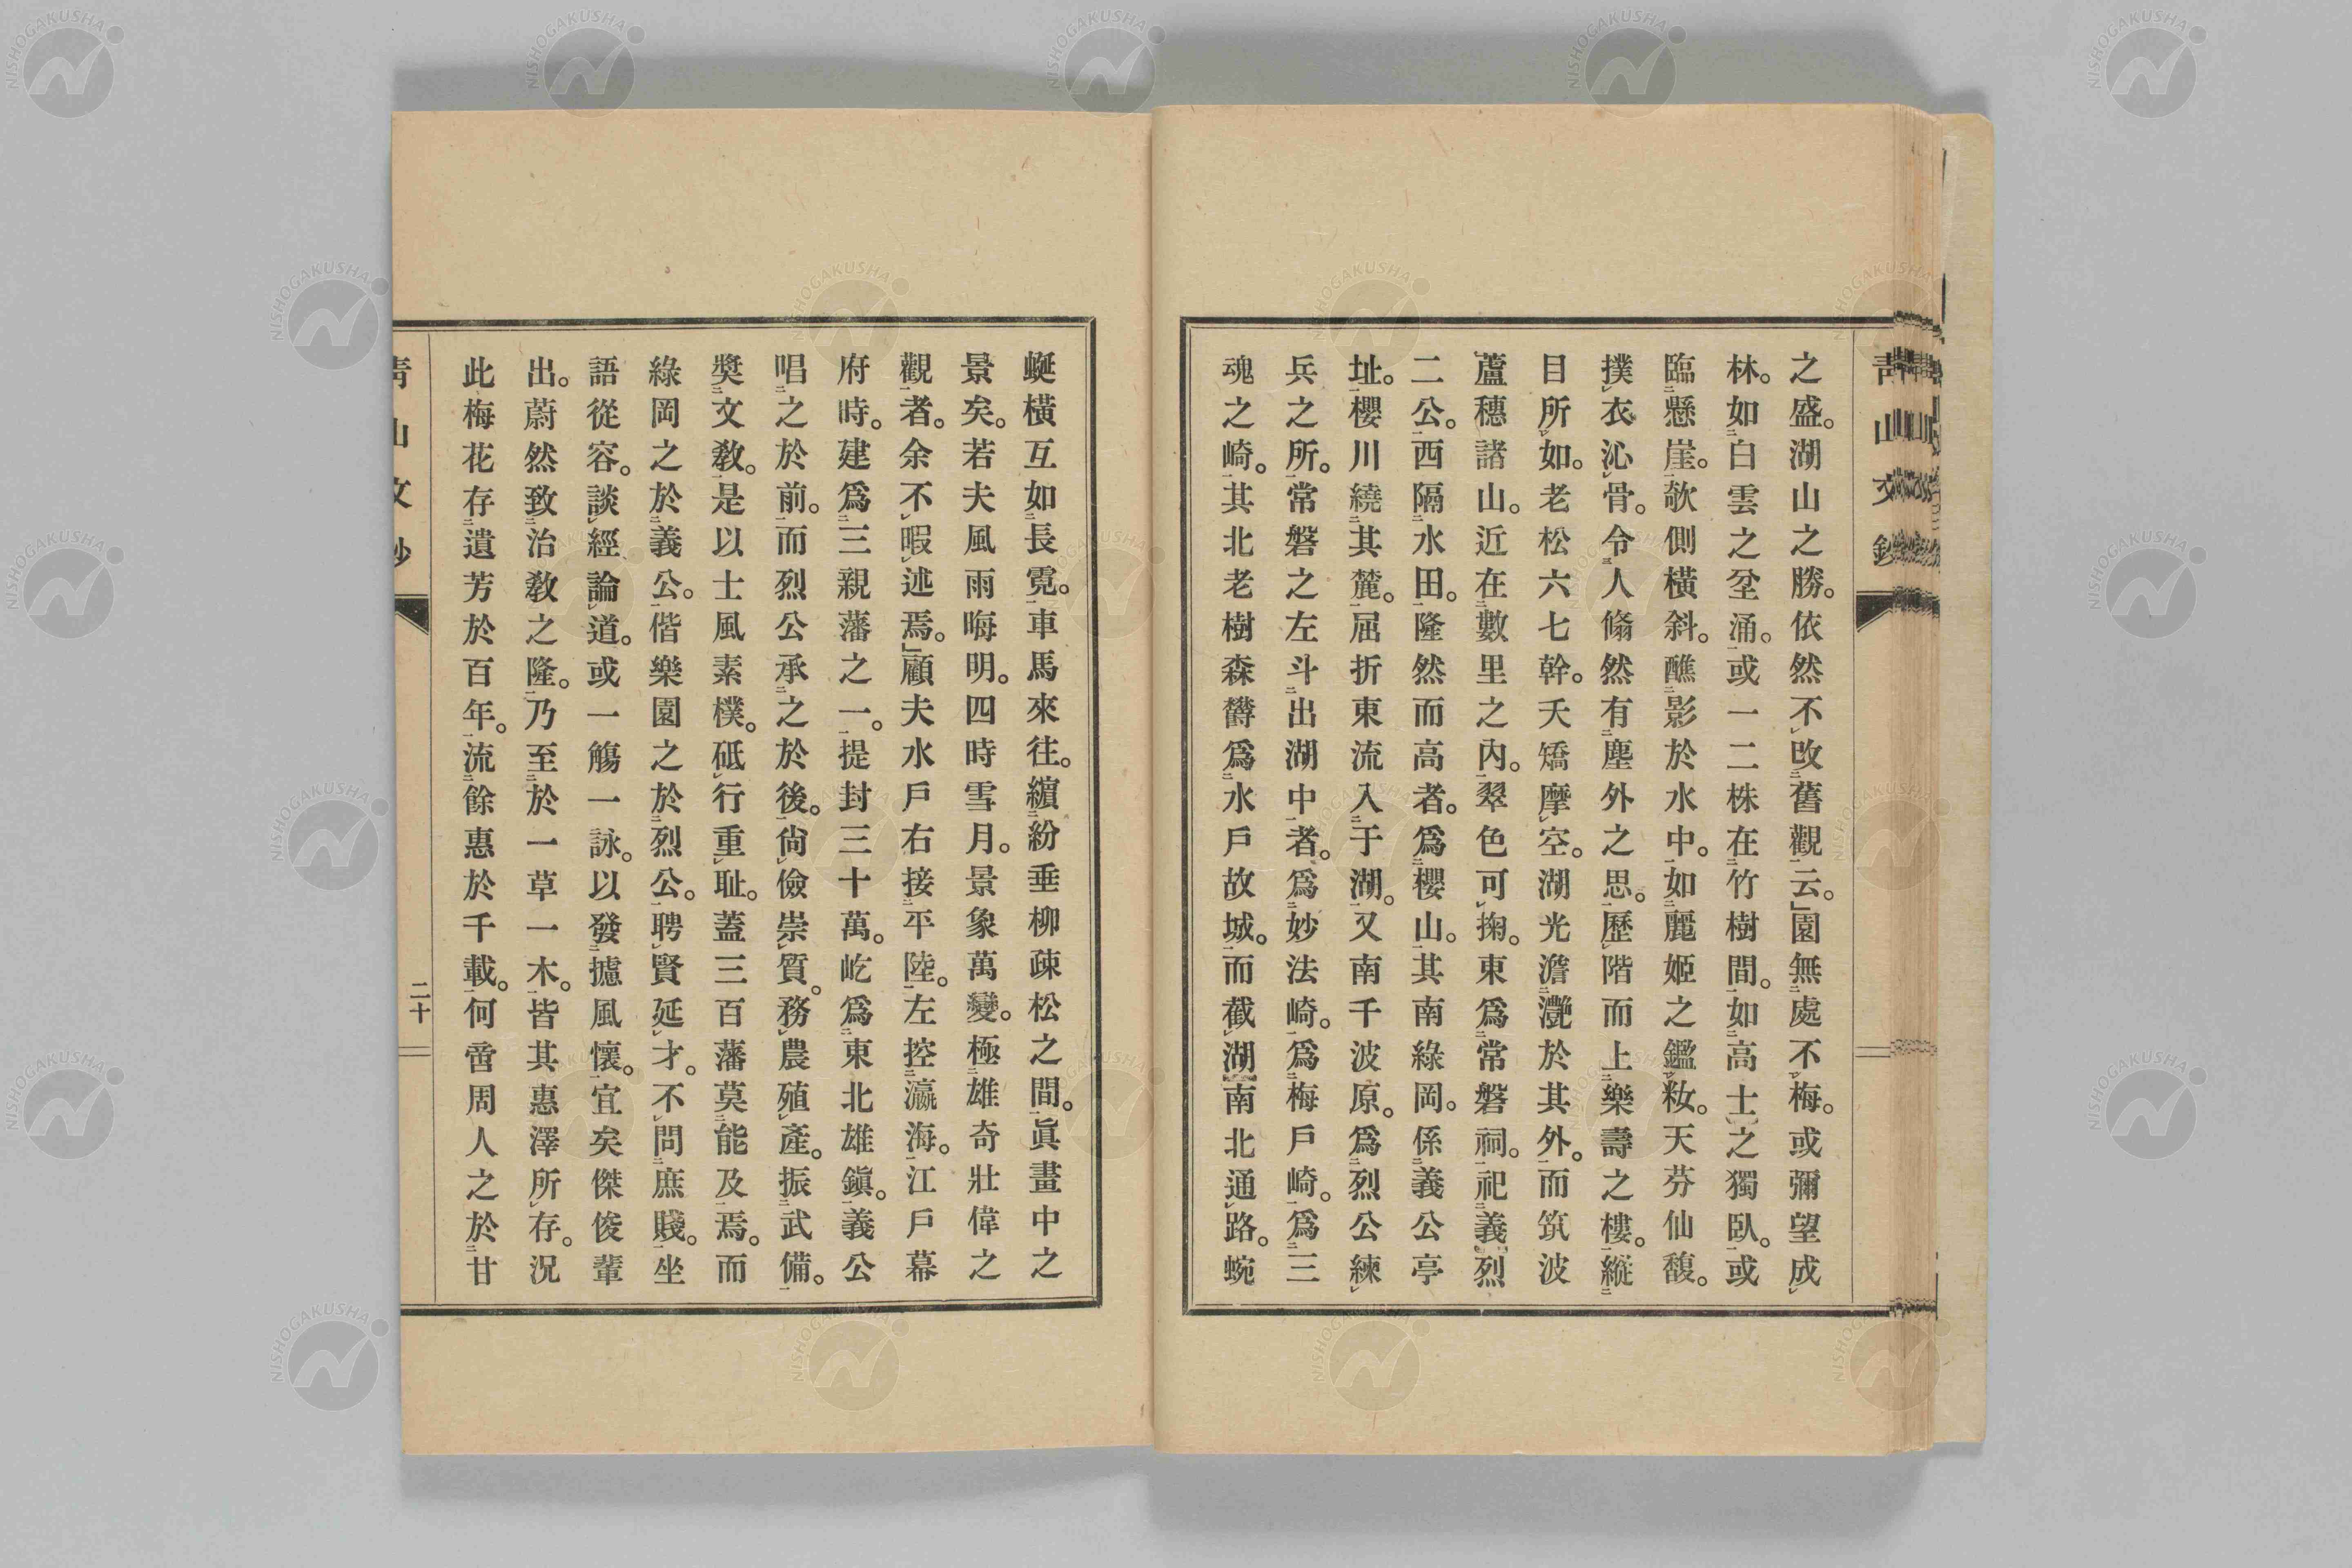 靑山文鈔
之盛。湖山之勝。依然不㆑改㆓舊觀㆒云。」園無㆓處不㆒㆑梅。或彌望成㆑
林。如㆓白雲之坌涌㆒。或一二株在㆓竹樹間㆒。如㆓高士之獨臥㆒。或
臨㆓懸崖㆒。欹側橫斜。醮㆓影於水中㆒。如㆓麗姬之鑑㆒㆑籹。天芬仙馥。
撲㆑衣沁㆑骨。令㆔人翛然有㆓塵外之思㆒。歷㆑階而上㆓樂壽之樓㆒。縱㆓
目所㆒㆑如。老松六七幹。夭矯摩㆑空。湖光澹㆓灔於其外㆒。而筑波
蘆穗諸山。近在㆓數里之內㆒。翠色可㆑掬。東爲㆓常磐祠㆒。祀㆓義烈
二公㆒。西隔㆓水田㆒。隆然而高者。爲㆓櫻山㆒。其南綠岡。係㆓義公亭
址㆒。櫻川繞㆓其麓㆒。屈折東流入㆓于湖㆒。又南千波原。爲㆘烈公練㆑
兵之所㆖。常磐之左斗㆓出湖中㆒者。爲㆓妙法崎㆒。爲㆓梅戶崎㆒。爲㆓三
魂之崎㆒。其北老樹森欝爲㆓水戶故城㆒。而截㆑湖南北通㆑路。蜿
蜒橫互如㆓長霓㆒。車馬來往。繽㆓紛垂柳疎松之間㆒。眞畫中之
景矣。若夫風雨晦明。四時雪月。景象萬變。極㆓雄奇壯偉之
觀㆒者。余不㆑暇㆑述焉。」顧夫水戶右接㆓平陸㆒。左控㆓瀛海㆒。江戶幕
府時。建爲㆓三親藩之一㆒。提封三十萬。屹爲㆓東北雄鎭㆒。義公
唱㆓之於前㆒。而烈公承㆓之於後㆒。尙㆑儉崇㆑質。務㆑農殖㆑產。振㆓武備㆒。
奬㆓文敎㆒。是以士風素樸。砥㆑行重㆑耻。蓋三百藩莫㆓能及㆒焉。而
綠岡之於㆓義公㆒。偕樂園之於㆓烈公㆒。聘㆑賢延㆑才。不㆑問㆓庶賤㆒。坐
語從容。談㆑經論㆑道。或一觴一詠。以發㆓攄風懷㆒。宜矣傑俊輩
出。蔚然致㆓治敎之隆㆒。乃至㆓於一草一木㆒。皆其惠澤所㆑存。況
此梅花存㆓遺芳於百年㆒。流㆓餘惠於千載㆒。何啻周人之於㆓甘
靑山文鈔
二十
NISHOGAKUSHA